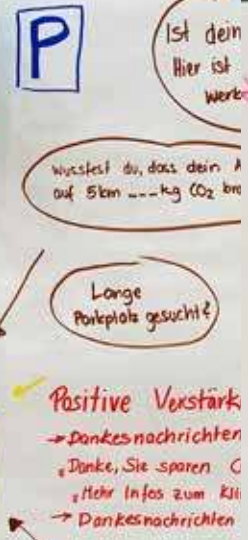 P
Ist dein
Hier ist
Werb
Wusstest du, dass dein A
auf 5km ___kg CO2 bra
Lange
Parkplatz gesucht?
Positive Verstärk
→ Dankesnachrichten
"Danke, Sie sparen C
"Mehr Infos zum Kli
→ Dankesnachrichten